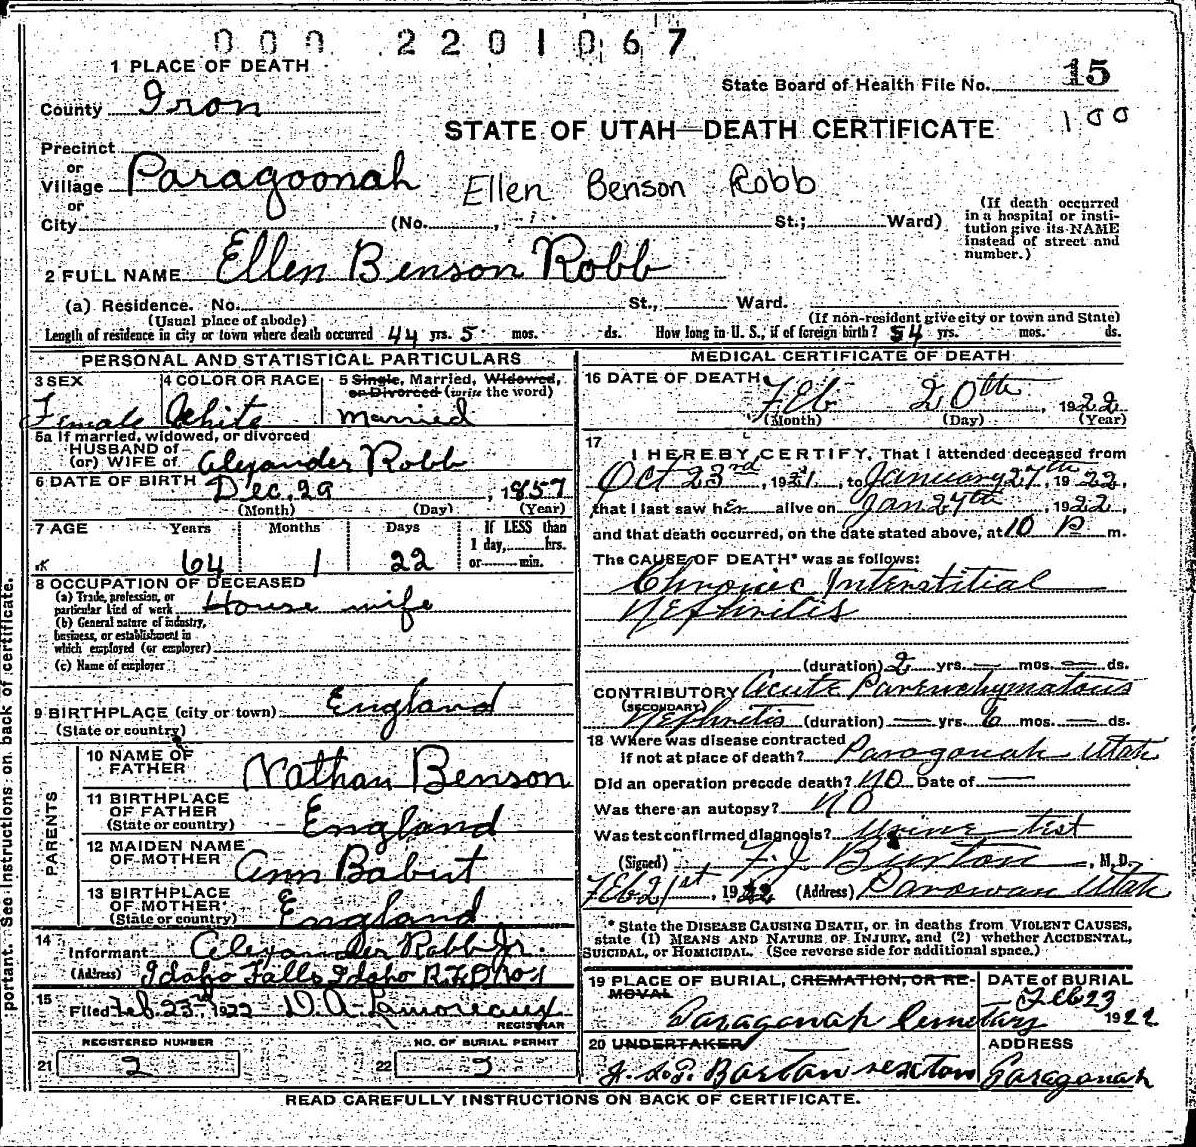 000 2201067
1 PLACE OF DEATH
State Board of Health File No. 15
County Iron
100
STATE OF UTAH—DEATH CERTIFICATE
Precinct
or
Village Paragoonah
Ellen Benson Robb
or
City (No. St.; Ward)
(If death occurred
in a hospital or insti-
tution give its NAME
instead of street and
number.)
2 FULL NAME Ellen Benson Robb
(a) Residence. No. St., Ward.
(Usual place of abode) (If non-resident give city or town and State)
Length of residence in city or town where death occurred 44 yrs. 5 mos. ds. How long in U. S., if of foreign birth? 54 yrs. mos. ds.
PERSONAL AND STATISTICAL PARTICULARS
3 SEX 4 COLOR OR RACE 5 Single, Married, Widowed,
or Divorced (write the word)
Female White Married
5a If married, widowed, or divorced
HUSBAND of
(or) WIFE of Alexander Robb
6 DATE OF BIRTH Dec. 29, 1857
(Month) (Day) (Year)
7 AGE Years Months Days If LESS than
1 day, hrs.
64 1 22 or min.
8 OCCUPATION OF DECEASED
(a) Trade, profession, or
particular kind of work House wife
(b) General nature of industry,
business, or establishment in
which employed (or employer)
(c) Name of employer
9 BIRTHPLACE (city or town) England
(State or country)
PARENTS
10 NAME OF
FATHER Nathan Benson
11 BIRTHPLACE
OF FATHER
(State or country) England
12 MAIDEN NAME
OF MOTHER Ann Babut
13 BIRTHPLACE
OF MOTHER
(State or country) England
14
Informant Alexander Robb Jr.
(Address) Idaho Falls Idaho R.F.D No 1
15
Filed Feb. 23rd 1922 D. A. Lamoreaux
REGISTRAR
REGISTERED NUMBER NO. OF BURIAL PERMIT
21 2 22 2
MEDICAL CERTIFICATE OF DEATH
16 DATE OF DEATH
Feb 20th, 1922
(Month) (Day) (Year)
17
I HEREBY CERTIFY, That I attended deceased from
Oct 23rd, 1921, to January 27th, 1922,
that I last saw her alive on Jan 27th, 1922,
and that death occurred, on the date stated above, at 10 P m.
The CAUSE OF DEATH* was as follows:
Chronic Interstitial
Nephritis
(duration) 2 yrs. — mos. — ds.
CONTRIBUTORY Acute Parenchymatous
(SECONDARY)
Nephritis (duration) — yrs. 6 mos. — ds.
18 Where was disease contracted
if not at place of death? Paragonah Utah
Did an operation precede death? No Date of —
Was there an autopsy? No
Was test confirmed diagnosis? Urine test
(Signed) F. J. Burton, M.D.
Feb 21st, 1922 (Address) Parowan Utah
* State the DISEASE CAUSING DEATH, or in deaths from VIOLENT CAUSES,
state (1) MEANS AND NATURE OF INJURY, and (2) whether ACCIDENTAL,
SUICIDAL, or HOMICIDAL. (See reverse side for additional space.)
19 PLACE OF BURIAL, CREMATION, OR RE-
MOVAL
Paragonah Cemetary
DATE of BURIAL
Feb 23 1922
20 UNDERTAKER
Barton sexton
ADDRESS
Paragonah
READ CAREFULLY INSTRUCTIONS ON BACK OF CERTIFICATE.
portant. See instructions on back of certificate.